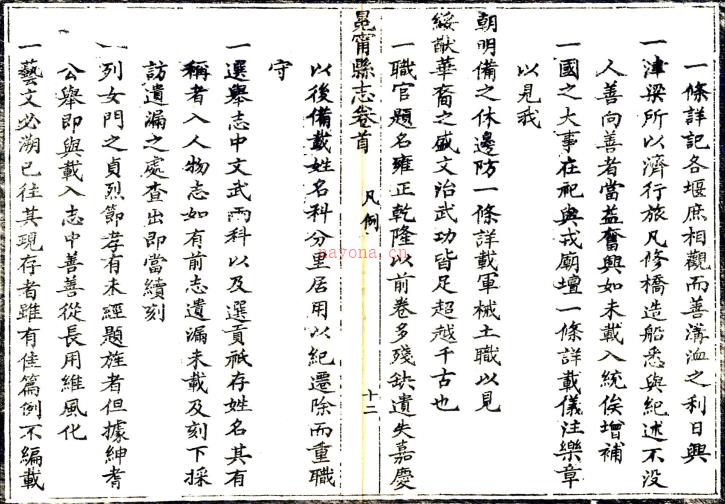 一條詳記各堰庶相觀而善溝洫之利日興
一津梁所以濟行旅凡修橋造船悉與紀述不没
人善向善者當益奮興如未載入統俟增補
一國之大事在祀與戎廟壇一條詳載儀注樂章
以見我
朝明備之休邊防一條詳載軍械土職以見
綏猷華裔之盛文治武功皆足超越千古也
一職官題名雍正乾隆以前卷多殘缺遺失嘉慶
冕甯縣志卷首
凡例
十二
以後備載姓名科分里居用以紀遷除而重職
守
一選舉志中文武兩科以及選貢祇存姓名其有
稱者入人物志如有前志遺漏未載及刻下採
訪遺漏之處查出即當續刻
一列女門之貞烈節孝有未經題旌者但據紳耆
公舉即與載入志中善善從長用維風化
一藝文必溯已往其現存者雖有佳篇例不編載
nayona.cn